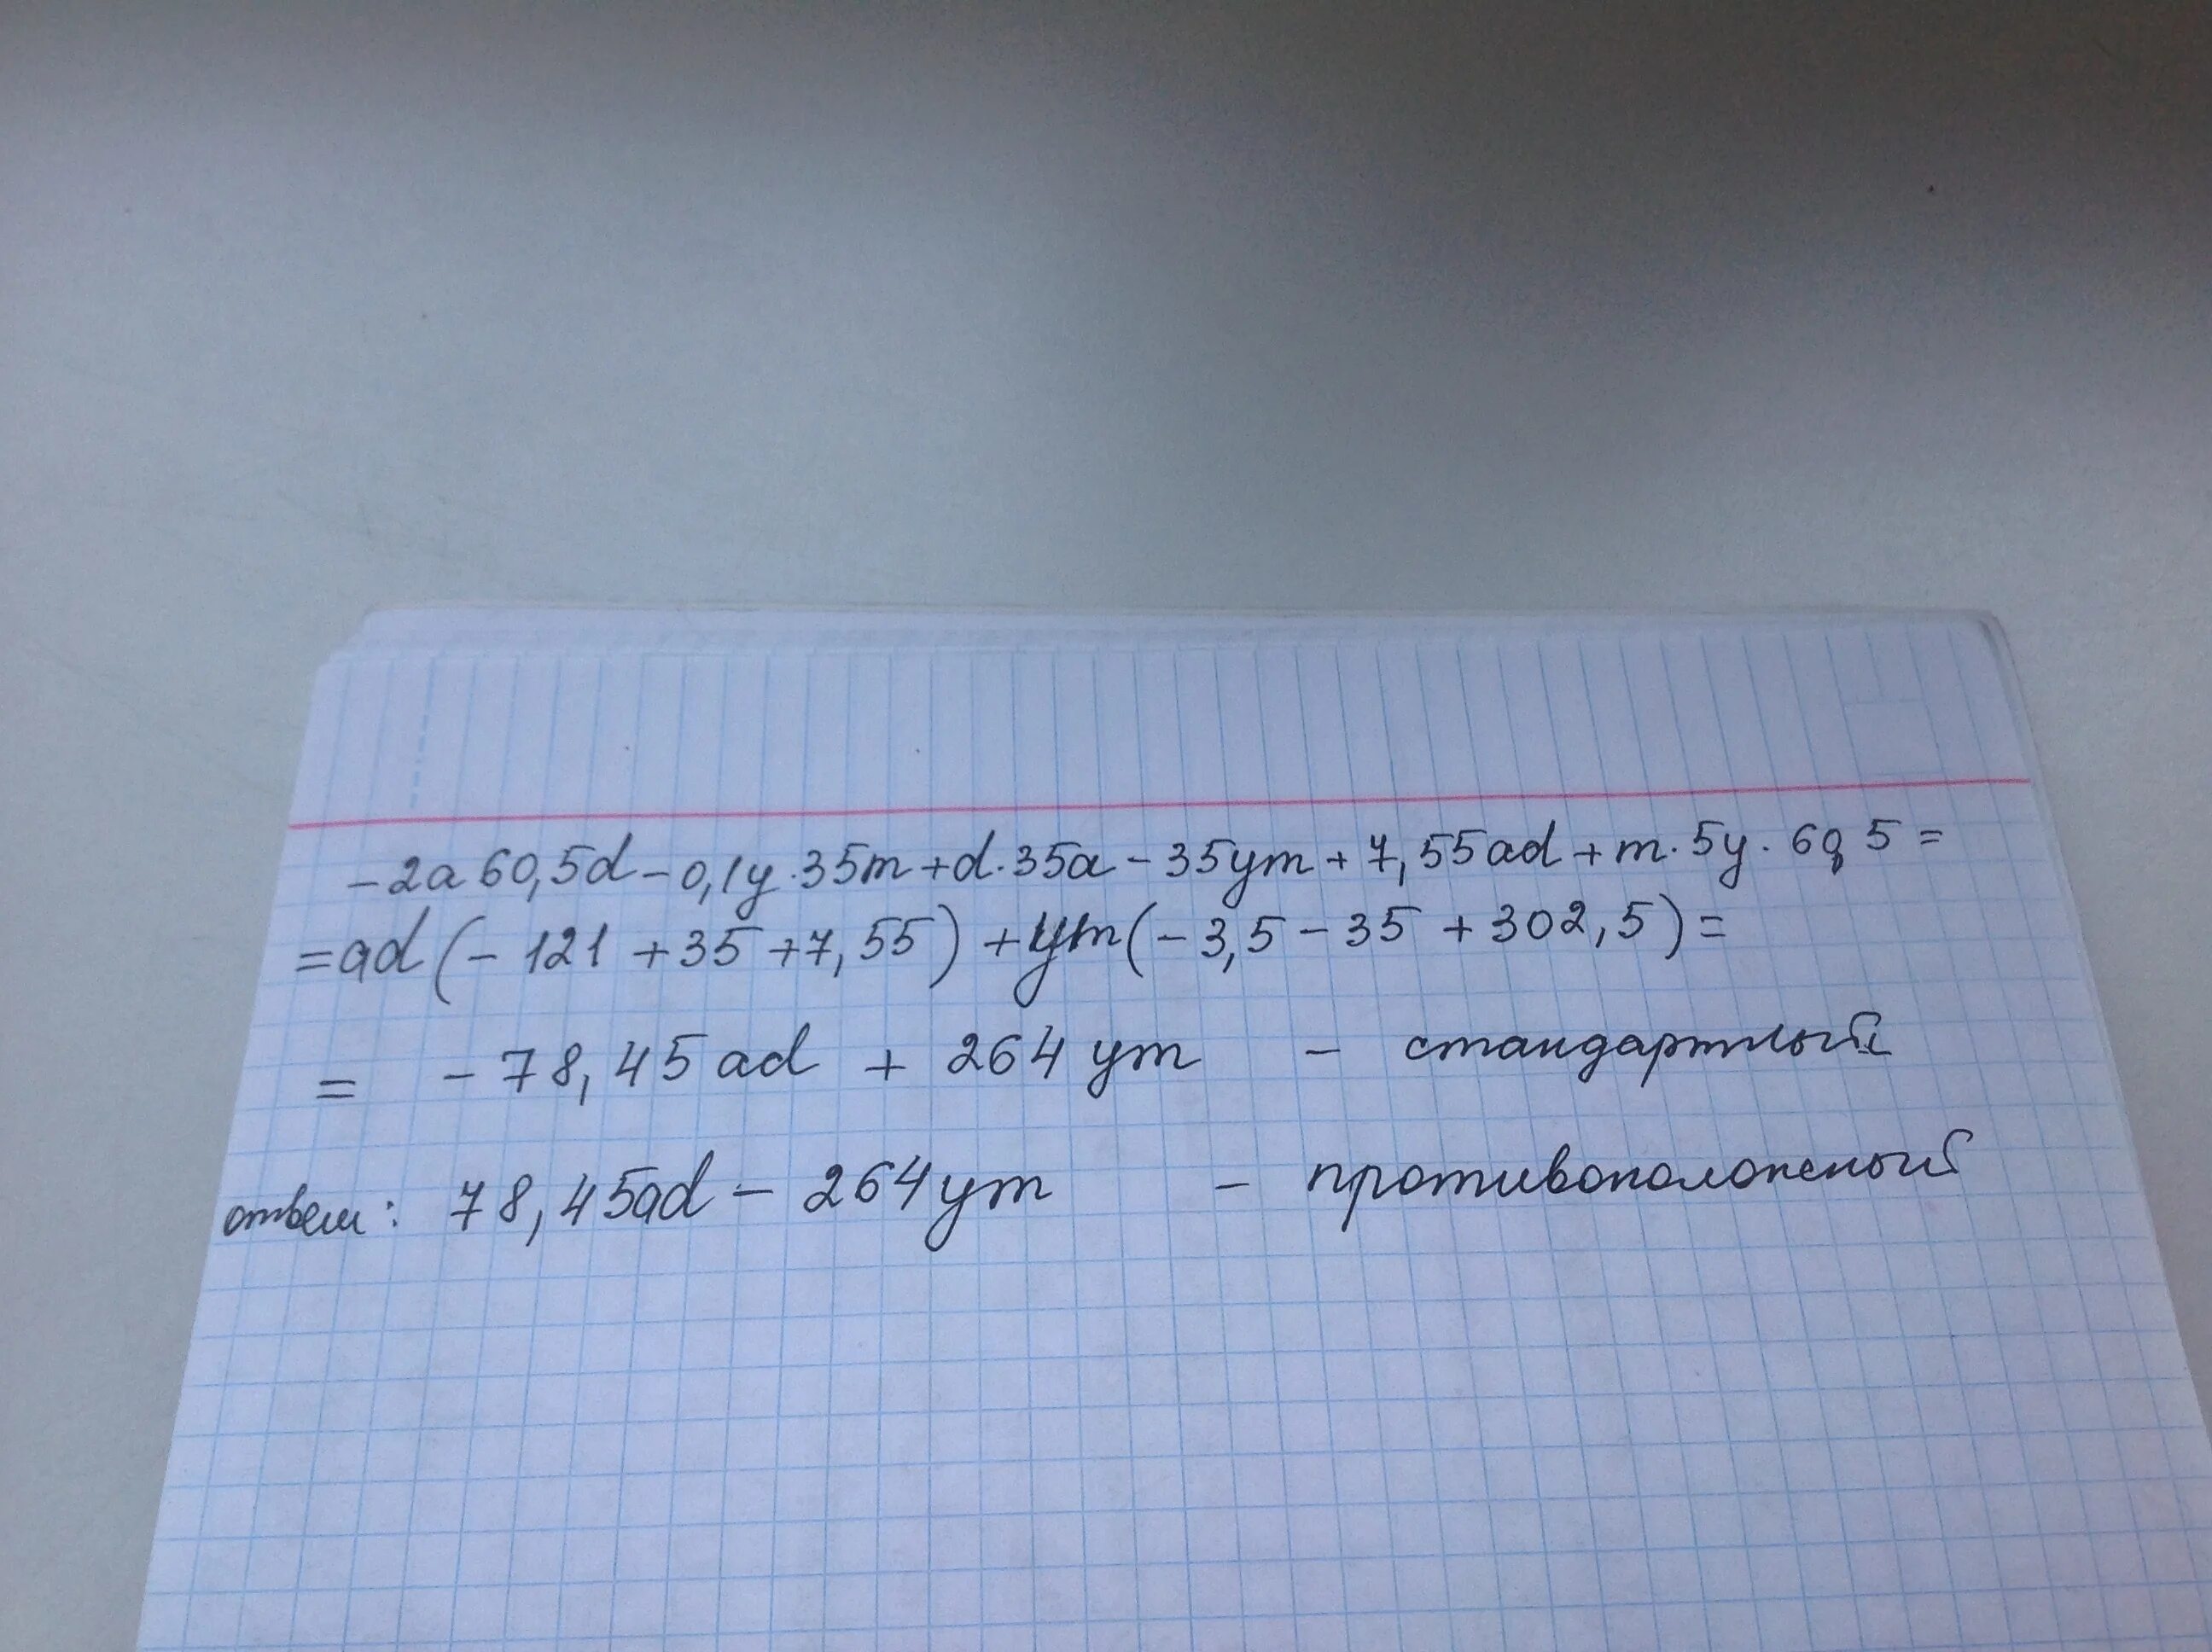 -2a60,5d-0,1y·35m+d·35a-35ym+7,55ad+m·5y·60,5=
=ad(-121+35+7,55)+ym(-3,5-35+302,5)=
= -78,45ad + 264ym - стандартный
ответ: 78,45ad - 264ym - противоположный